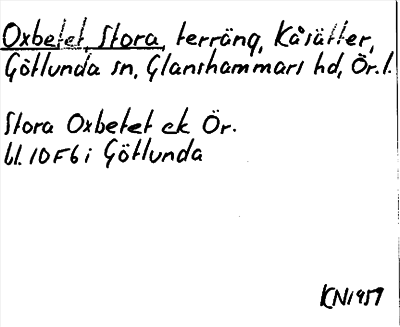 Oxbetet, Stora, terräng, Kåsätter,
Götlunda sn, Glanshammars hd, Ör.l.
Stora Oxbetet ek Ör.
bl. 10F6i Götlunda
KN1957